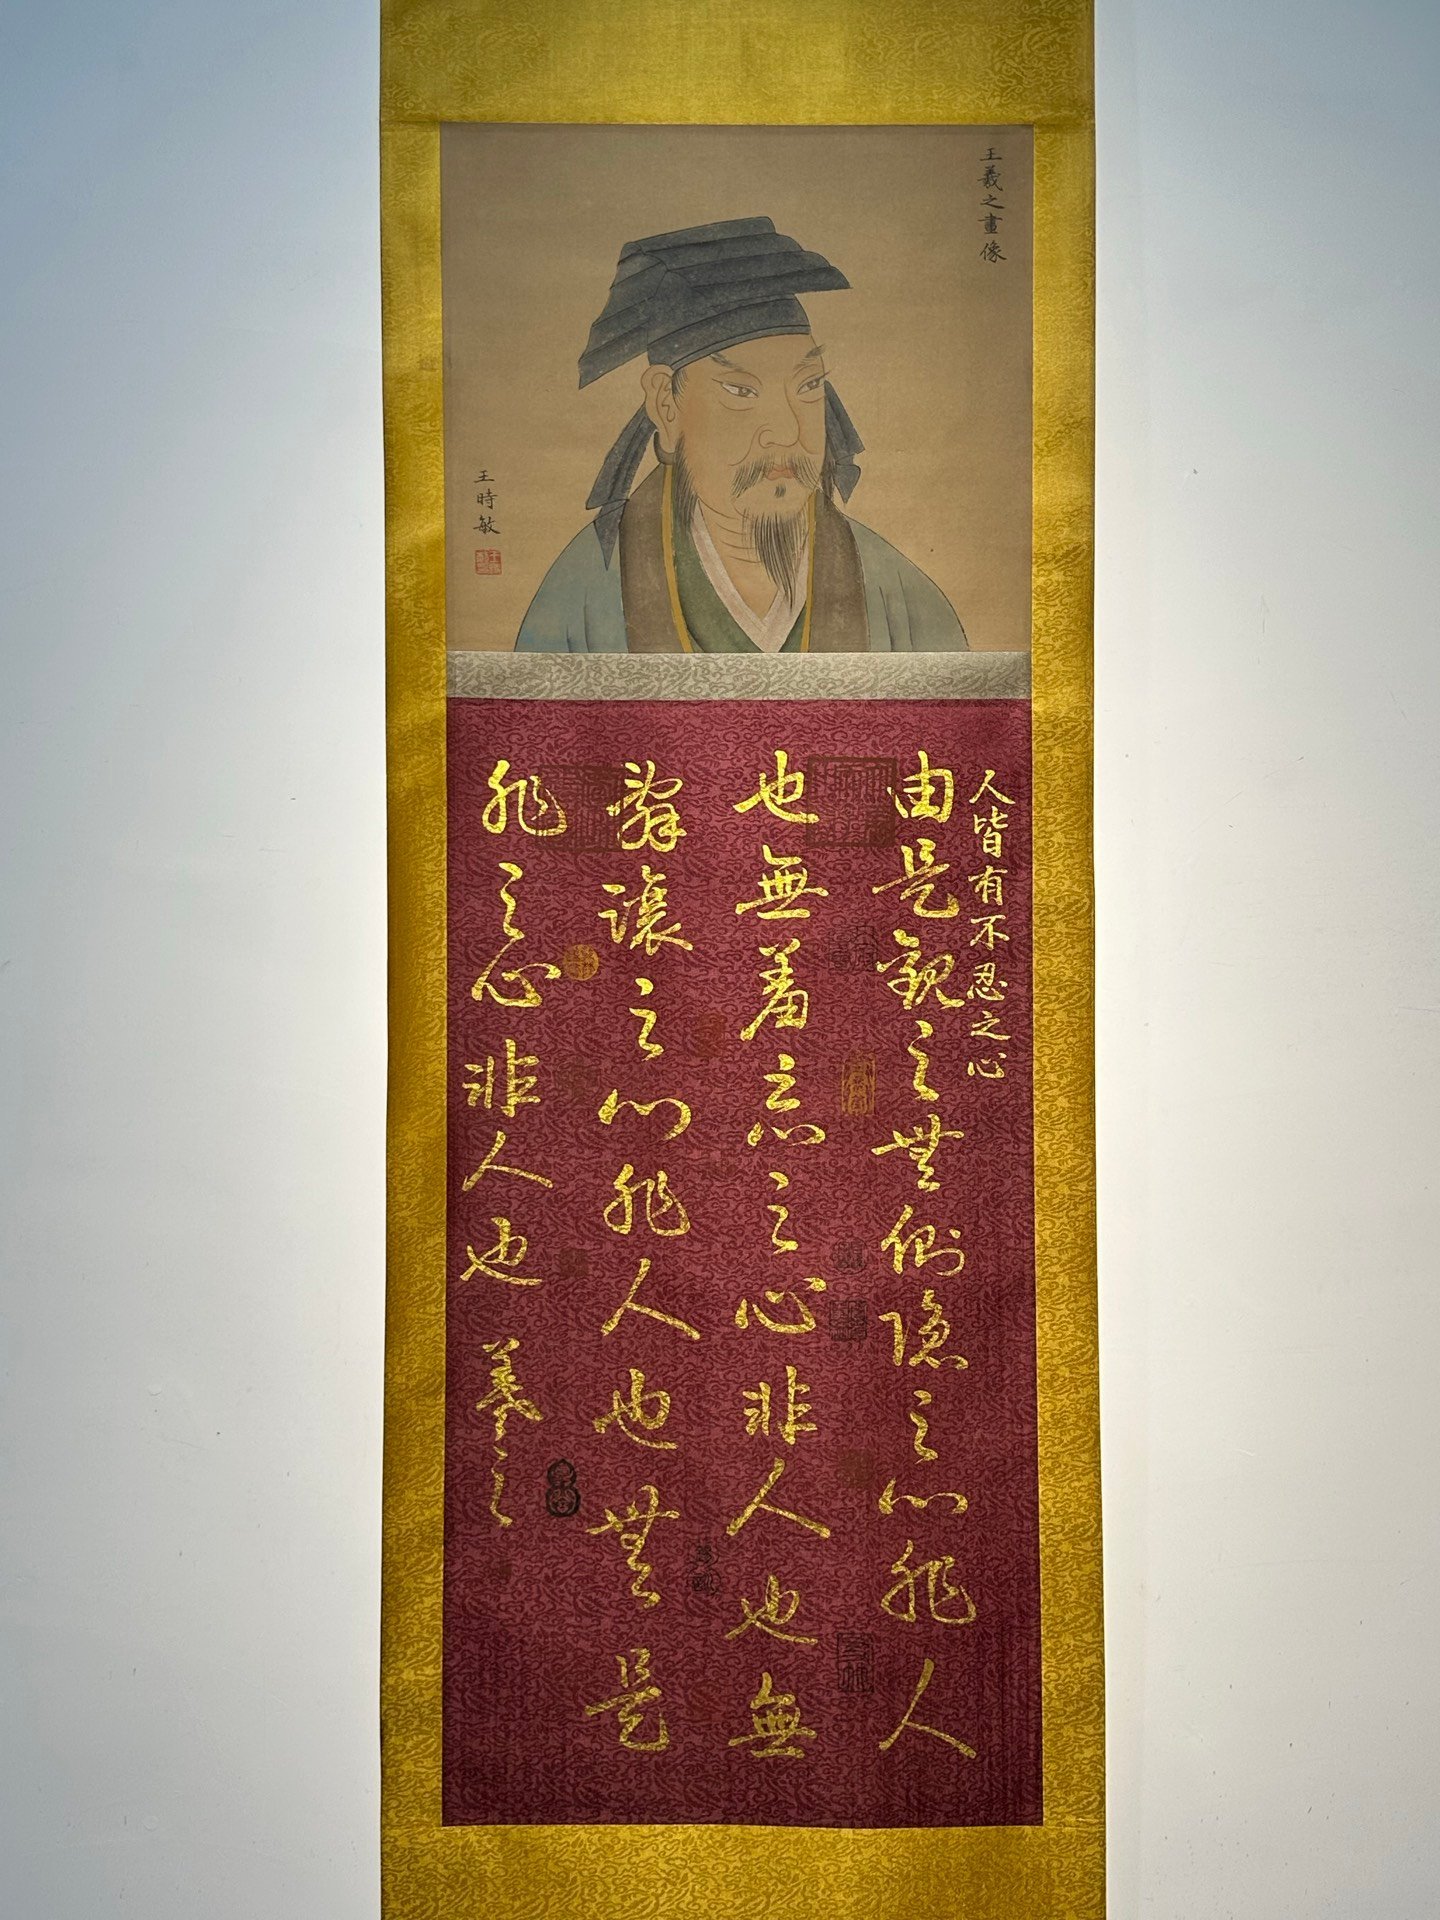 王羲之畫像
王時敏
人皆有不忍之心
由是觀之無側隱之心非人
也無羞惡之心非人也無
辭讓之心非人也無是
非之心非人也 羲之